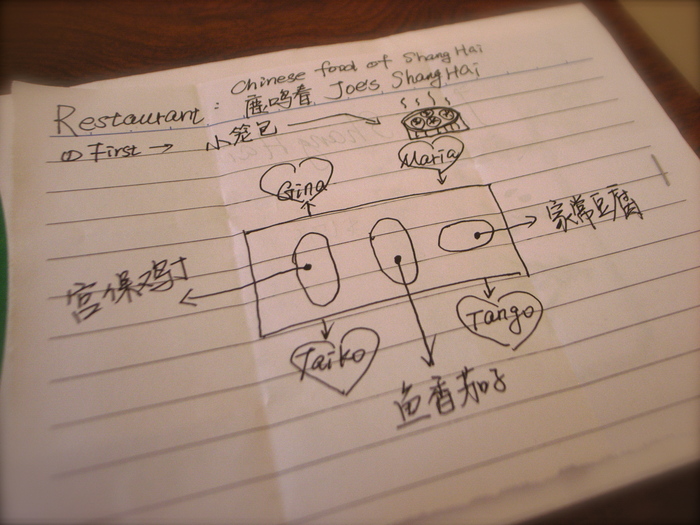 Chinese food of ShangHai
Restaurant: 鹿鸣春 Joe's ShangHai
① First → 小笼包
Maria
Gina
家常豆腐
宫保鸡丁
Tango
Taiko
鱼香茄子